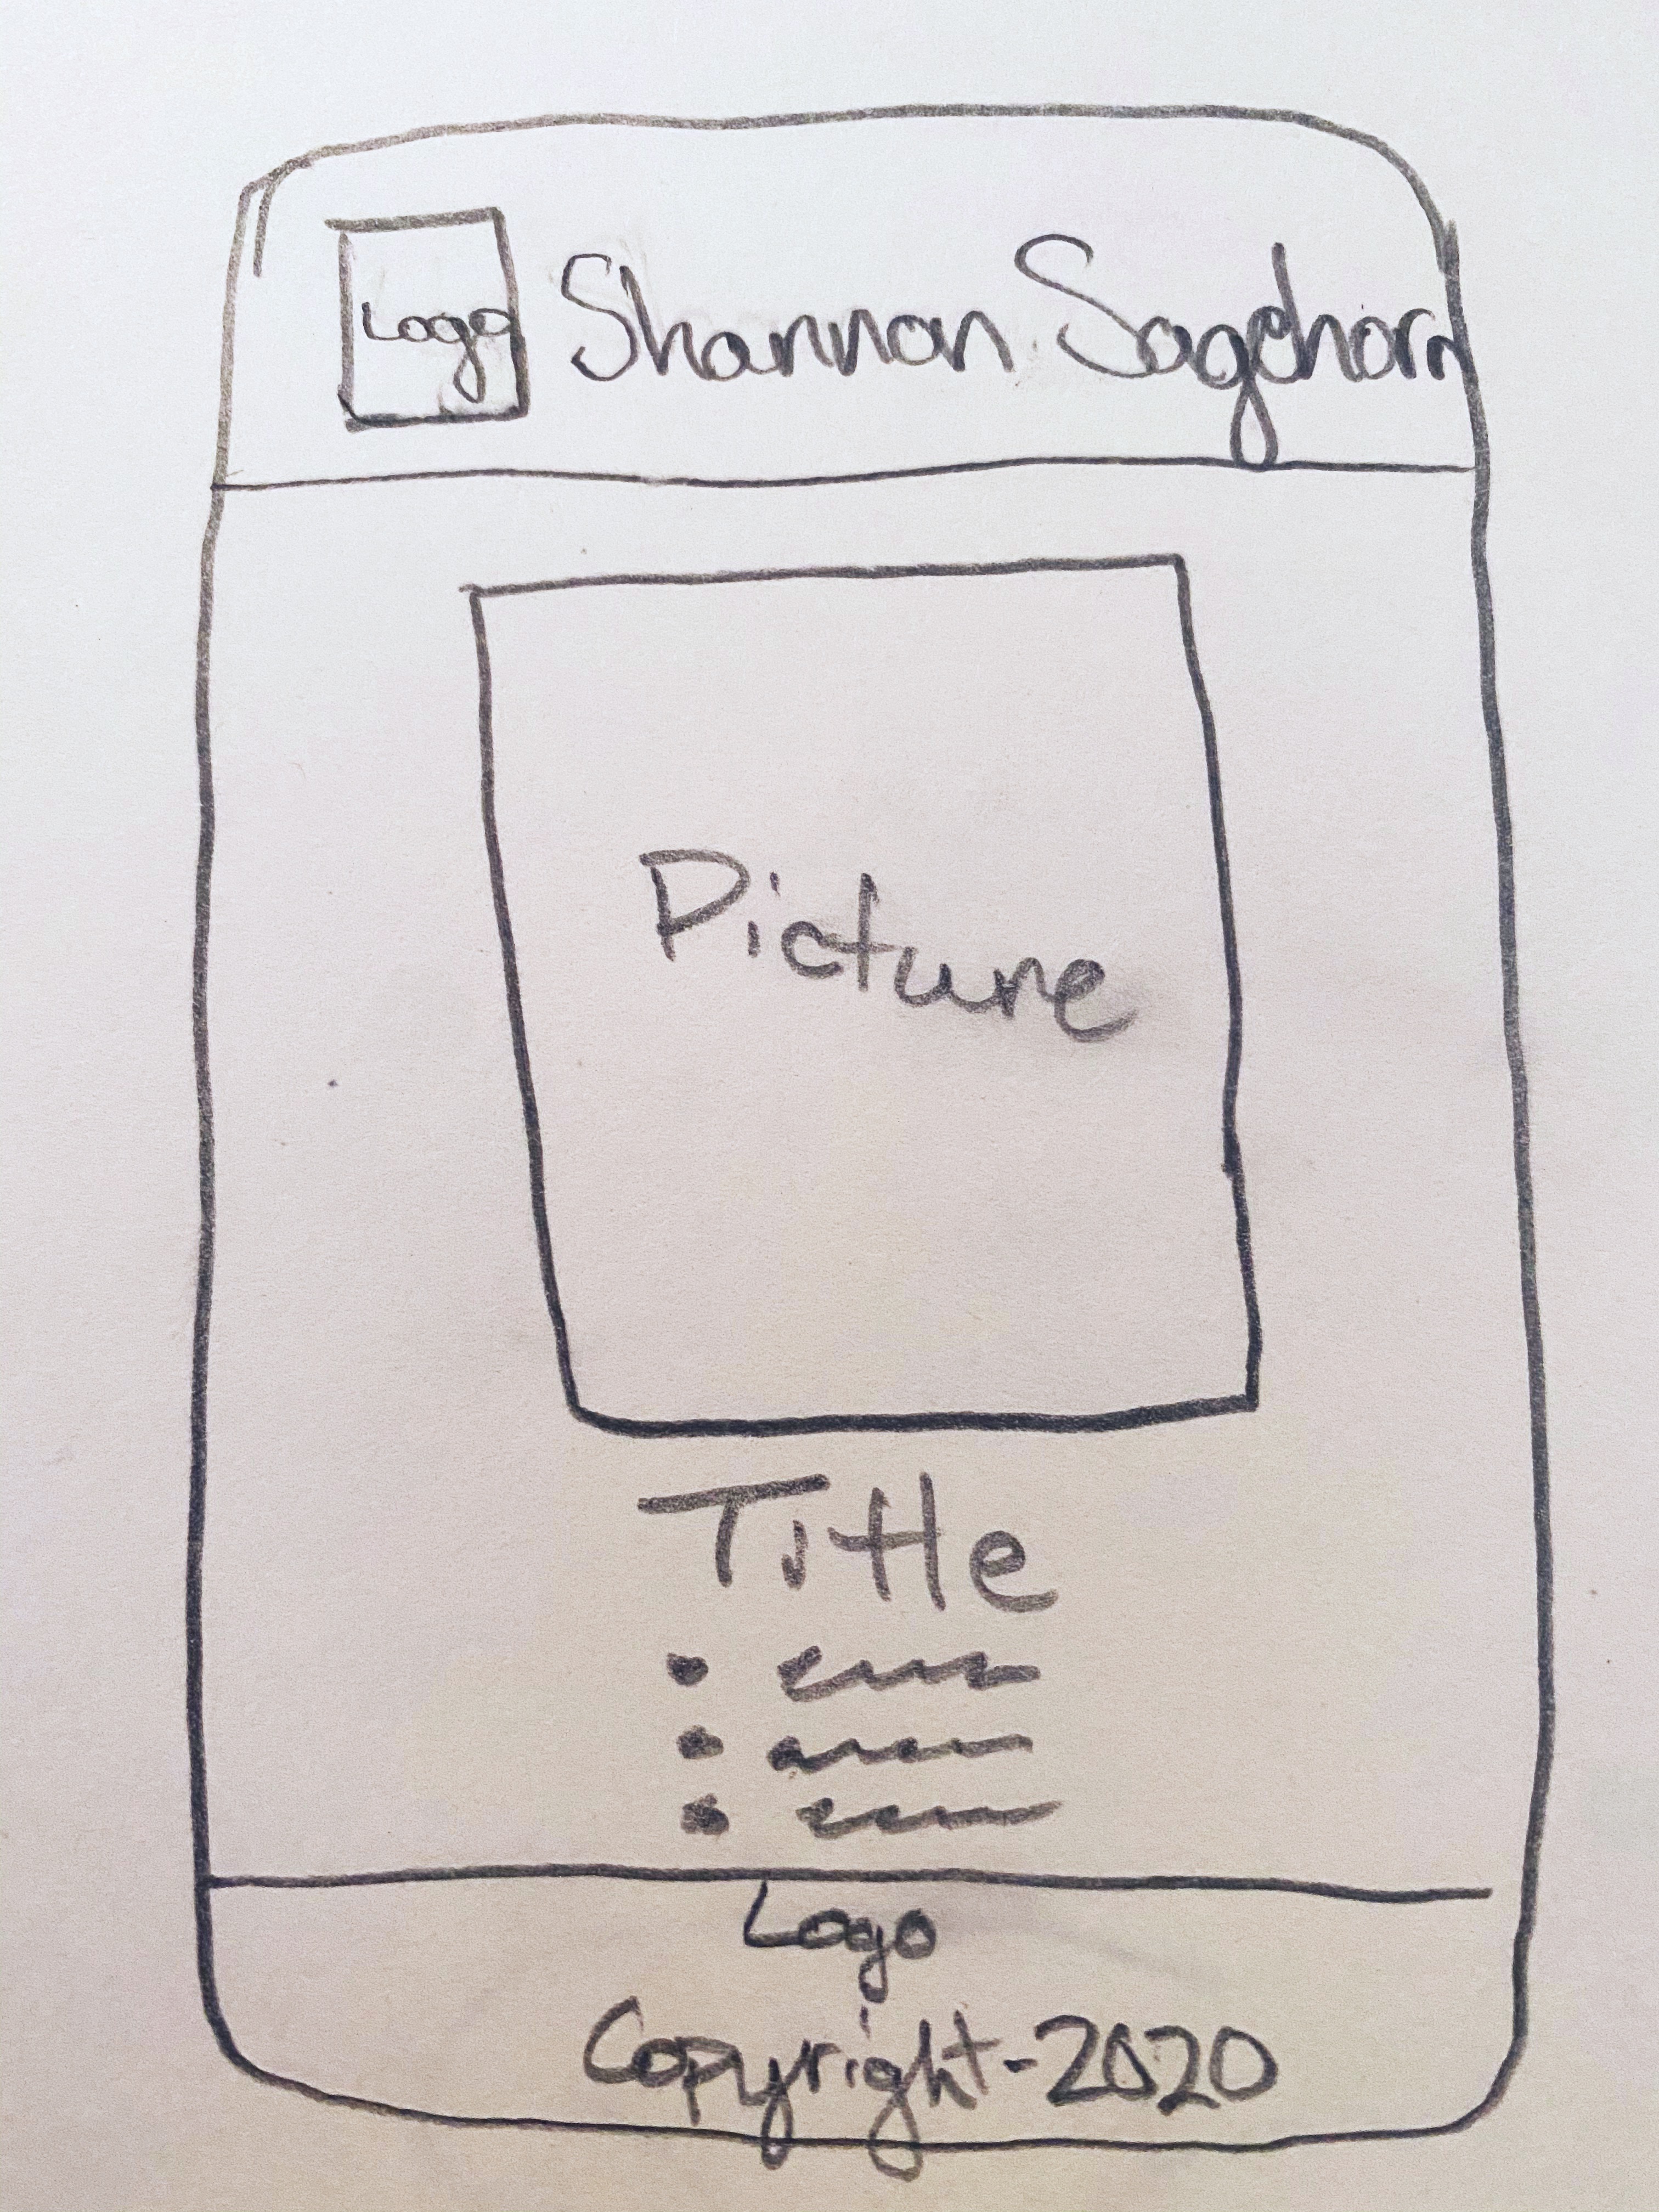 Logo Shannon Sagehorn
Picture
Title
Logo
Copyright-2020